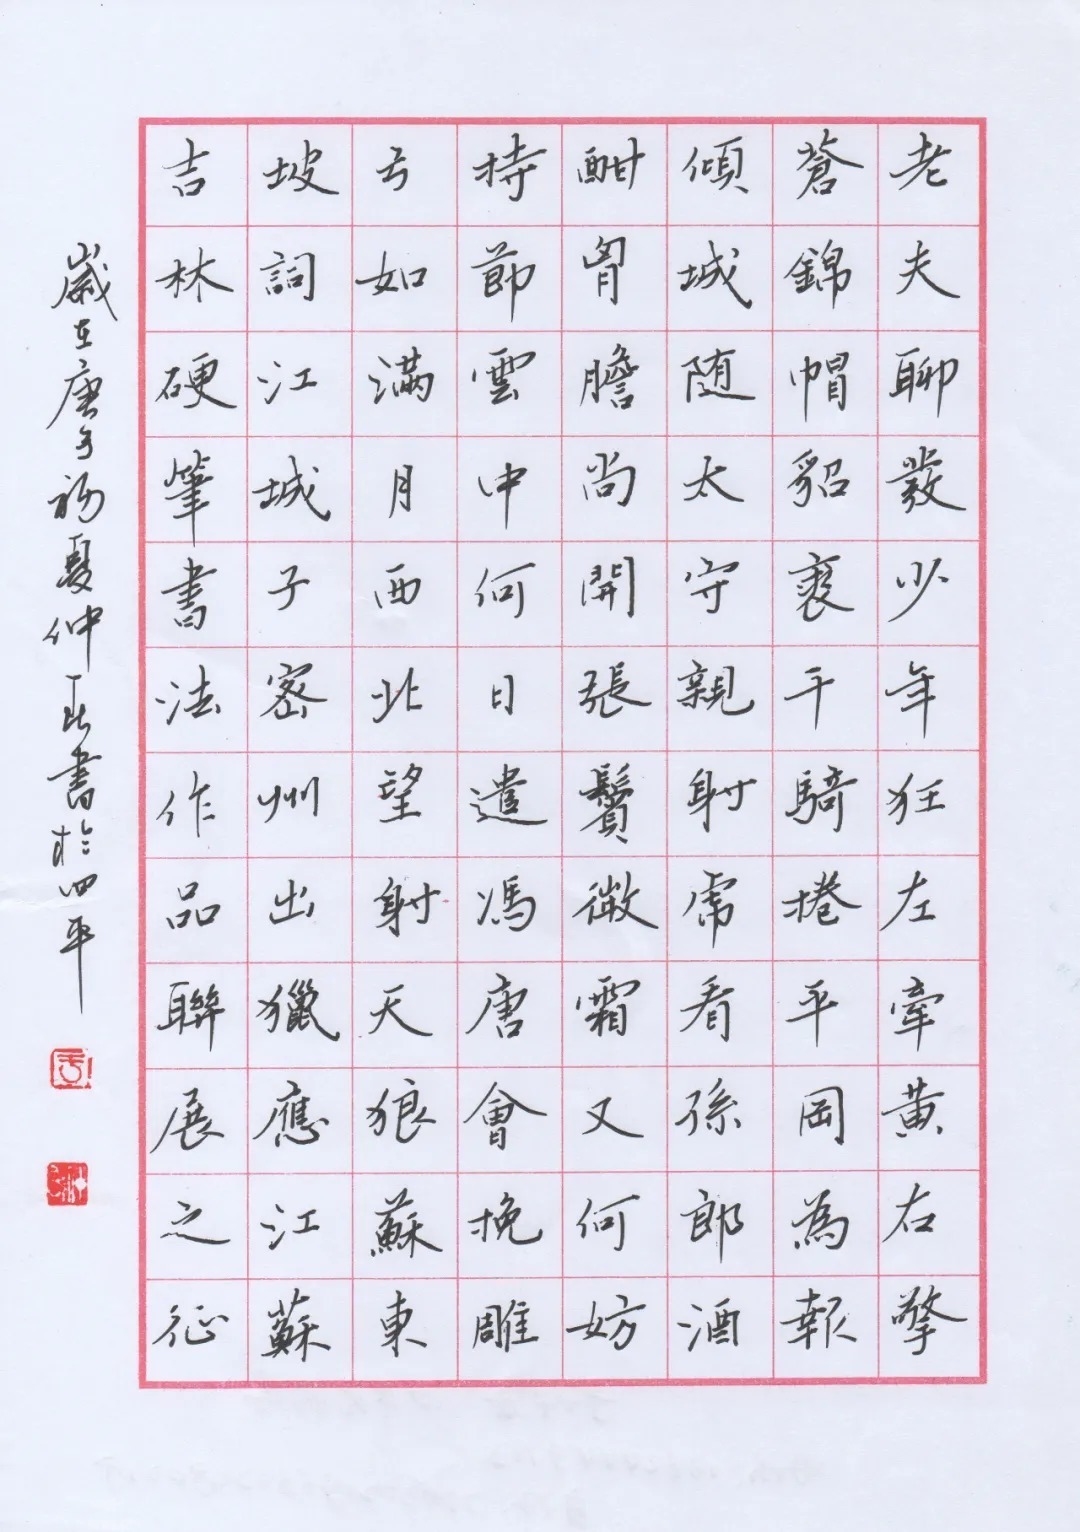 老夫聊發少年狂左牽黄右擎
蒼錦帽貂裘千騎捲平岡為報
傾城随太守親射虎看孫郎酒
酣胷膽尚開張鬢微霜又何妨
持節雲中何日遣馮唐會挽雕
弓如滿月西北望射天狼蘇東
坡詞江城子密州出獵應江蘇
吉林硬筆書法作品聯展之征
歲在庚子初夏仲書於四平